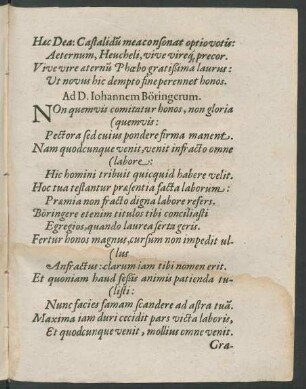 Hac Dea: Castalidū mea consonat optio votis:
Aeternum, Heucheli, vive vireq; precor.
Vive vire aternū Phœbo gratißima laurus:
Ut novus hic dempto fine perennet honos.
Ad D. Iohannem Böringerum.
NOn quemvis comitatur honos, non gloria
(quemvis:
Pectora sed cuius pondere firma manent.
Nam quodcunque venit, venit infracto omne
(labore:
Hic homini tribuit quicquid habere velit.
Hoc tua testantur præsentia facta laborum:
Præmia non fracto digna labore refers.
Böringere etenim titulos tibi conciliasti
Egregios, quando laurea serta geris.
Fertur honos magnus, cursum non impedit ul-
(lus
Anfractus: clarum iam tibi nomen erit.
Et quoniam haud feßis animis patienda tu-
(listi:
Nunc facies famam scandere ad astra tuā.
Maxima iam duri cecidit pars victa laboris,
Et quodcunque venit, mollius omne venit.
Gra-